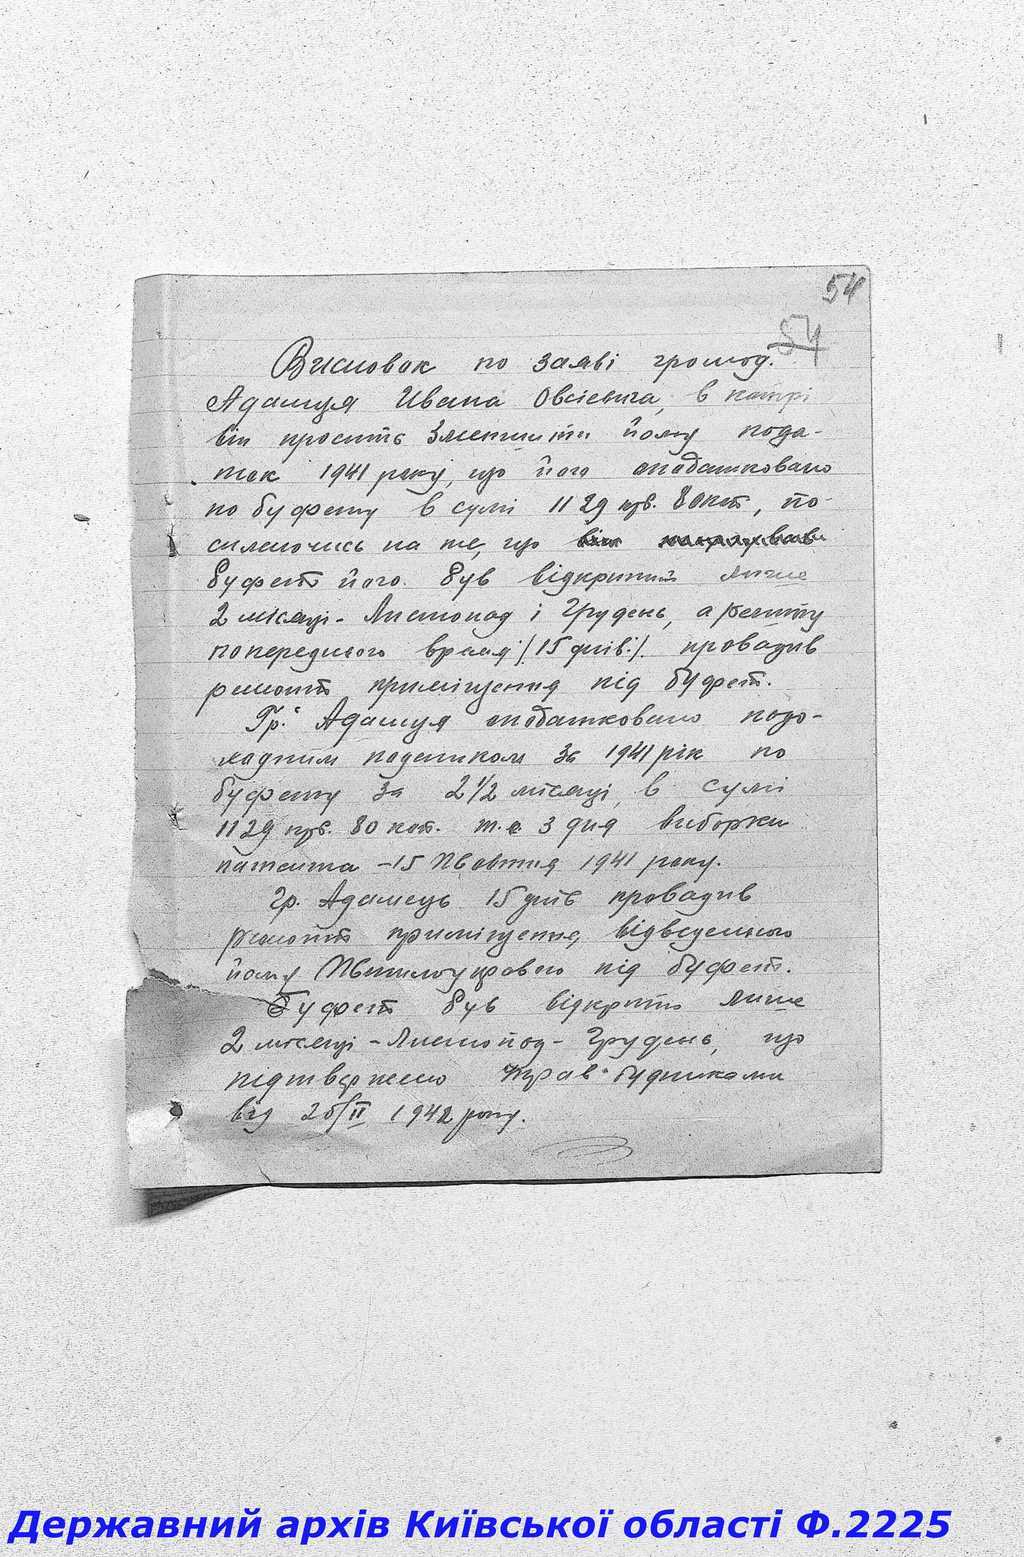 54
54
Висновок по заяві громад.
Адамця Ивана Овсієвича, в котрі
він просить зменшити йому пода-
ток 1941 року, що його оподатковано
по буфету в сумі 1129 крб. 80 коп, по-
силаючись на те, що він
буфет його був відкритий лише
2 місяці - Листопад і Грудень, а решту
попередного время /15 днів/. провадив
ремонт приміщення під буфет.
Гр. Адамця оподатковано подо-
ходним податком за 1941 рік по
буфету за 2 1/2 місяці, в сумі
1129 крб. 80 коп. т.е. з дня виборки
патента - 15 Жовтня 1941 року.
Гр. Адамець 15 днів провадив
ремонт приміщення, відведеного
йому під буфет.
Буфет був відкрито лише
2 місяці - Листопад - Грудень, що
підтвержено Управ. будинками
від 26/II 1942 року.
Державний архів Київської області Ф.2225